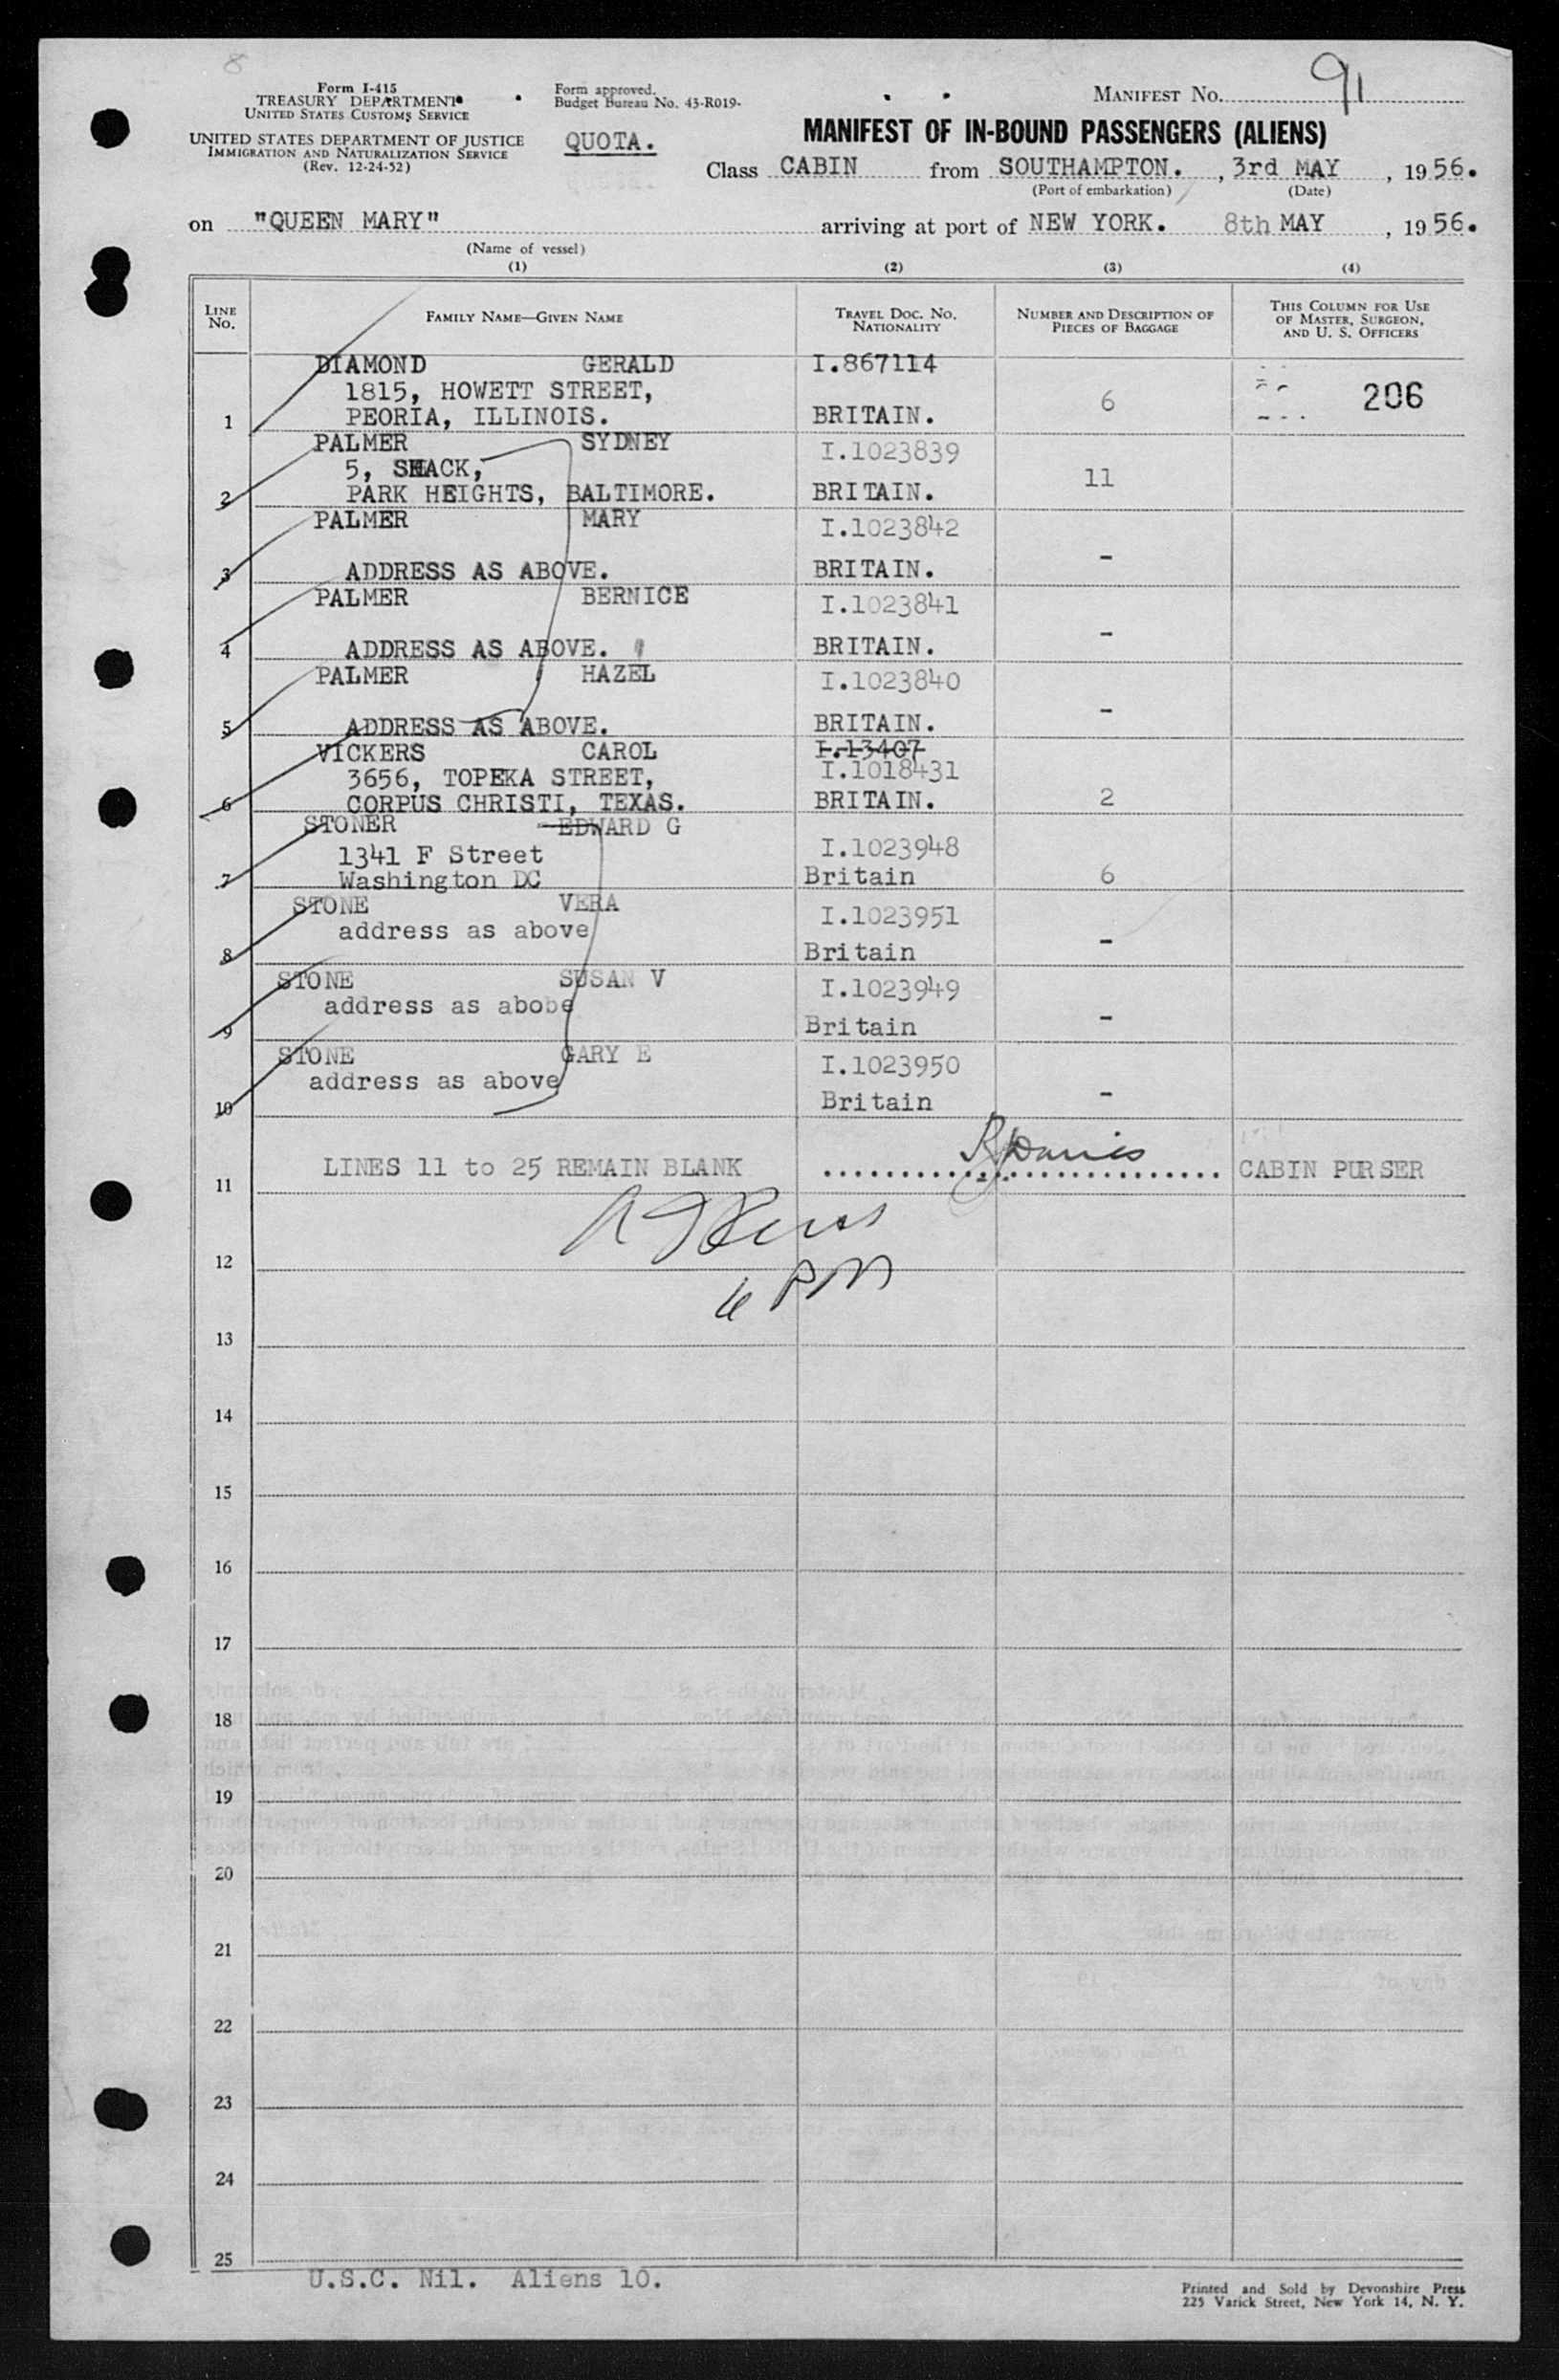 8
Form I-415
TREASURY DEPARTMENT
UNITED STATES CUSTOMS SERVICE
UNITED STATES DEPARTMENT OF JUSTICE
IMMIGRATION AND NATURALIZATION SERVICE
(Rev. 12-24-52)
Form approved.
Budget Bureau No. 43-R019-
QUOTA.
MANIFEST NO. 91
MANIFEST OF IN-BOUND PASSENGERS (ALIENS)
Class CABIN from SOUTHAMPTON. , 3rd MAY , 1956.
(Port of embarkation) (Date)
on "QUEEN MARY" arriving at port of NEW YORK. 8th MAY , 1956.
(Name of vessel)
(1) (2) (3) (4)
LINE No. FAMILY NAME—GIVEN NAME TRAVEL DOC. NO. NATIONALITY NUMBER AND DESCRIPTION OF PIECES OF BAGGAGE THIS COLUMN FOR USE OF MASTER, SURGEON, AND U. S. OFFICERS
DIAMOND GERALD I.867114
1815, HOWETT STREET, 6 206
1 PEORIA, ILLINOIS. BRITAIN.
PALMER SYDNEY I.1023839
5, SHACK, 11
2 PARK HEIGHTS, BALTIMORE. BRITAIN.
PALMER MARY I.1023842
-
3 ADDRESS AS ABOVE. BRITAIN.
PALMER BERNICE I.1023841
-
4 ADDRESS AS ABOVE. BRITAIN.
PALMER HAZEL I.1023840
-
5 ADDRESS AS ABOVE. BRITAIN.
VICKERS CAROL I.13407
3656, TOPEKA STREET, I.1018431
6 CORPUS CHRISTI, TEXAS. BRITAIN. 2
STONER EDWARD G
1341 F Street I.1023948
7 Washington DC Britain 6
STONE VERA I.1023951
address as above
8 Britain -
STONE SUSAN V I.1023949
address as abobe
9 Britain -
STONE GARY E I.1023950
address as above
10 Britain -
LINES 11 to 25 REMAIN BLANK R Davies CABIN PURSER
11
12
6 PM
13
14
15
16
17
18
19
20
21
22
23
24
25
U.S.C. Nil. Aliens 10.
Printed and Sold by Devonshire Press
225 Varick Street, New York 14, N. Y.